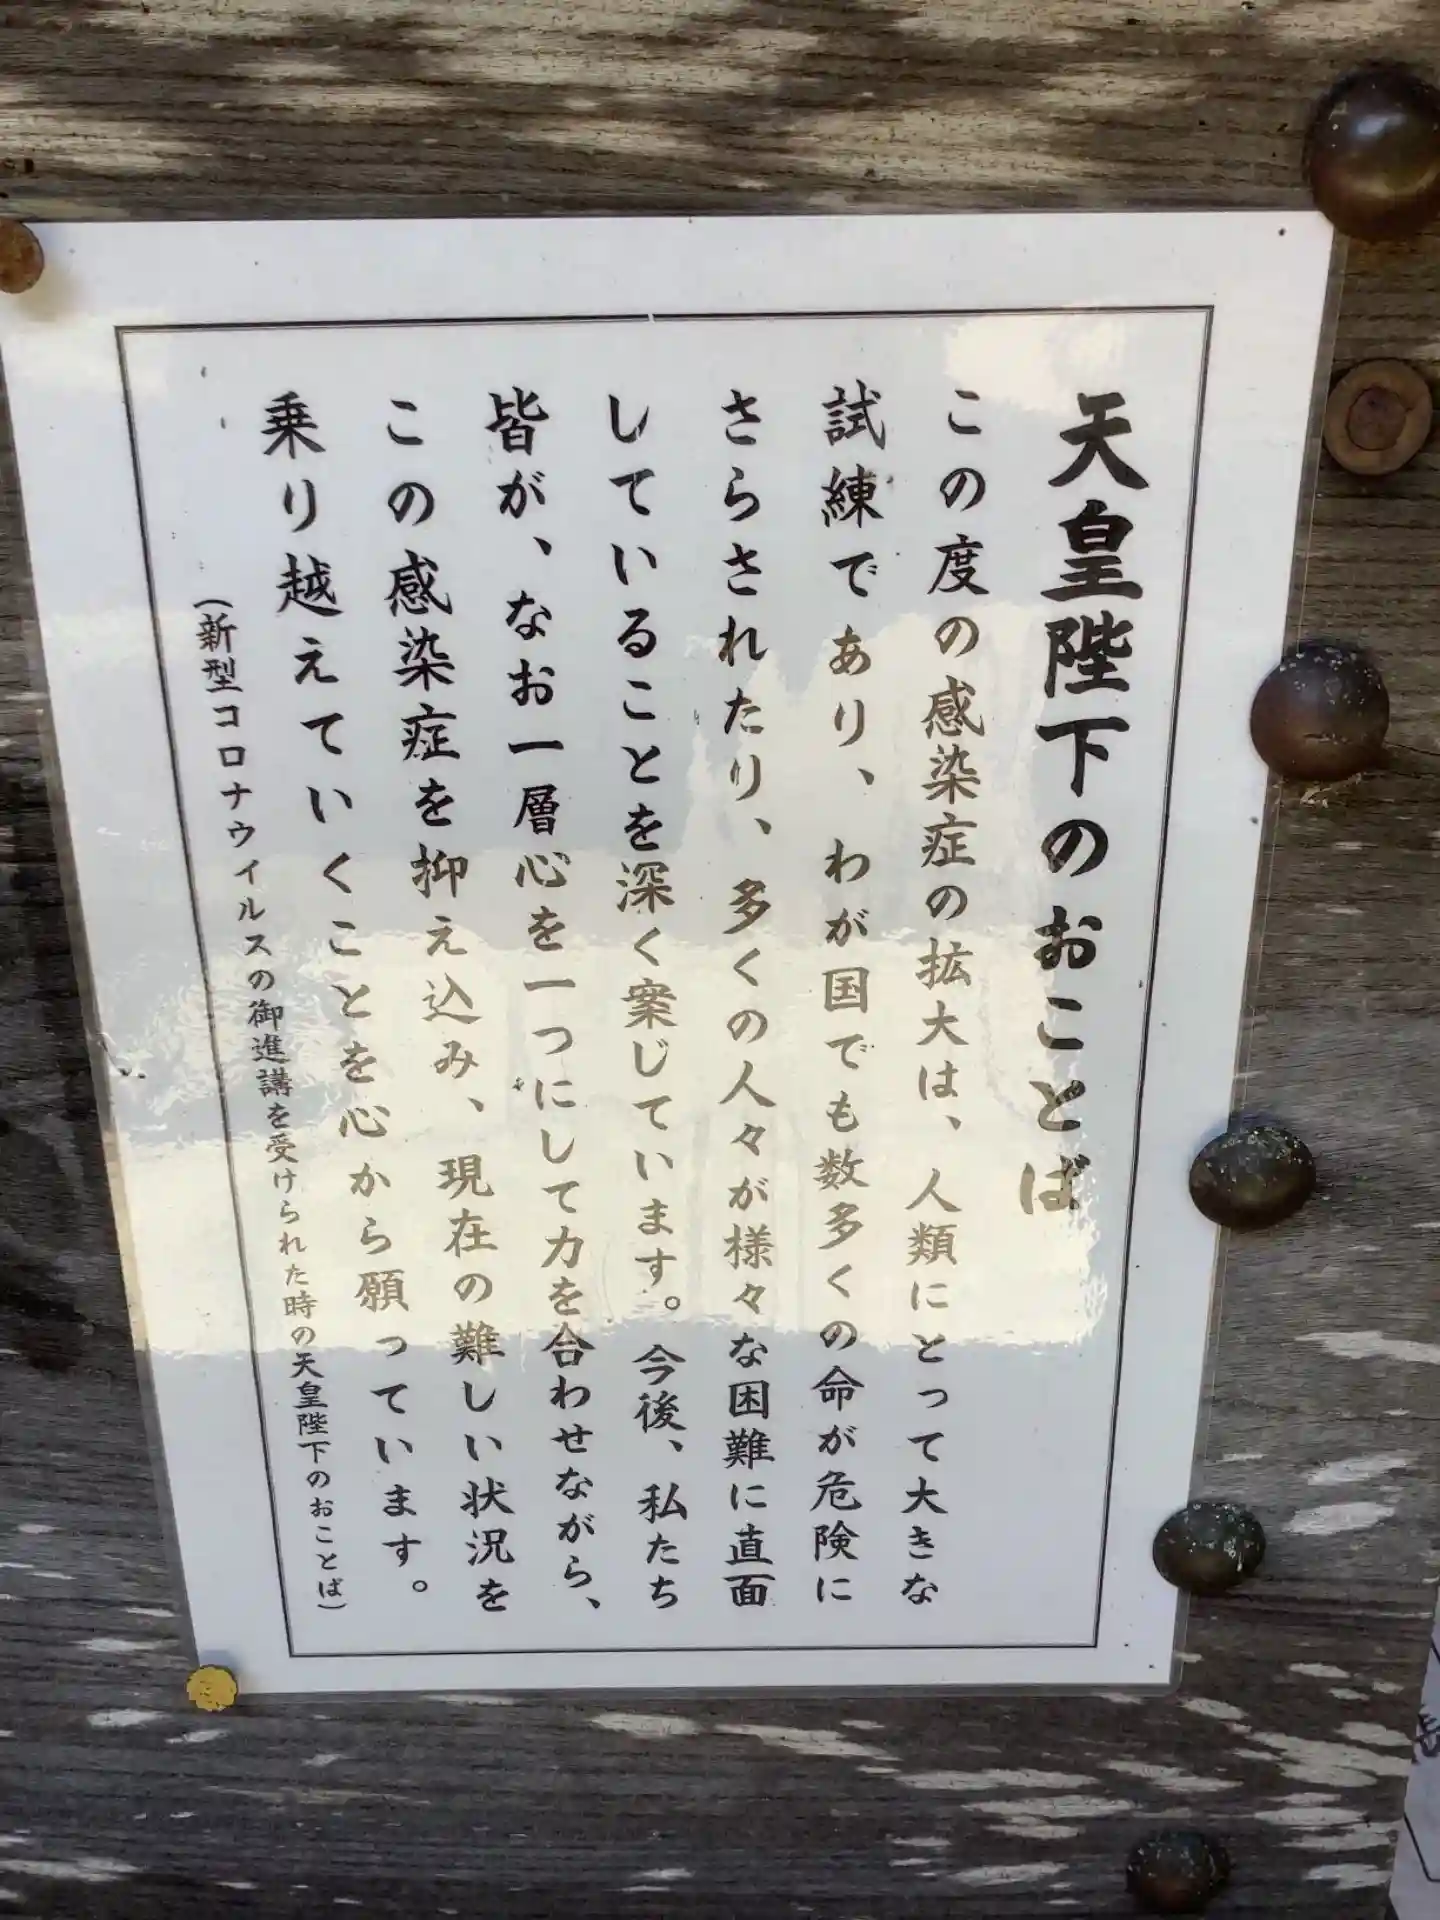 天皇陛下のおことば
この度の感染症の拡大は、人類にとって大きな
試練であり、わが国でも数多くの命が危険に
さらされたり、多くの人々が様々な困難に直面
していることを深く案じています。今後、私たち
皆が、なお一層心を一つにして力を合わせながら、
この感染症を抑え込み、現在の難しい状況を
乗り越えていくことを心から願っています。
(新型コロナウイルスの御進講を受けられた時の天皇陛下のおことば)